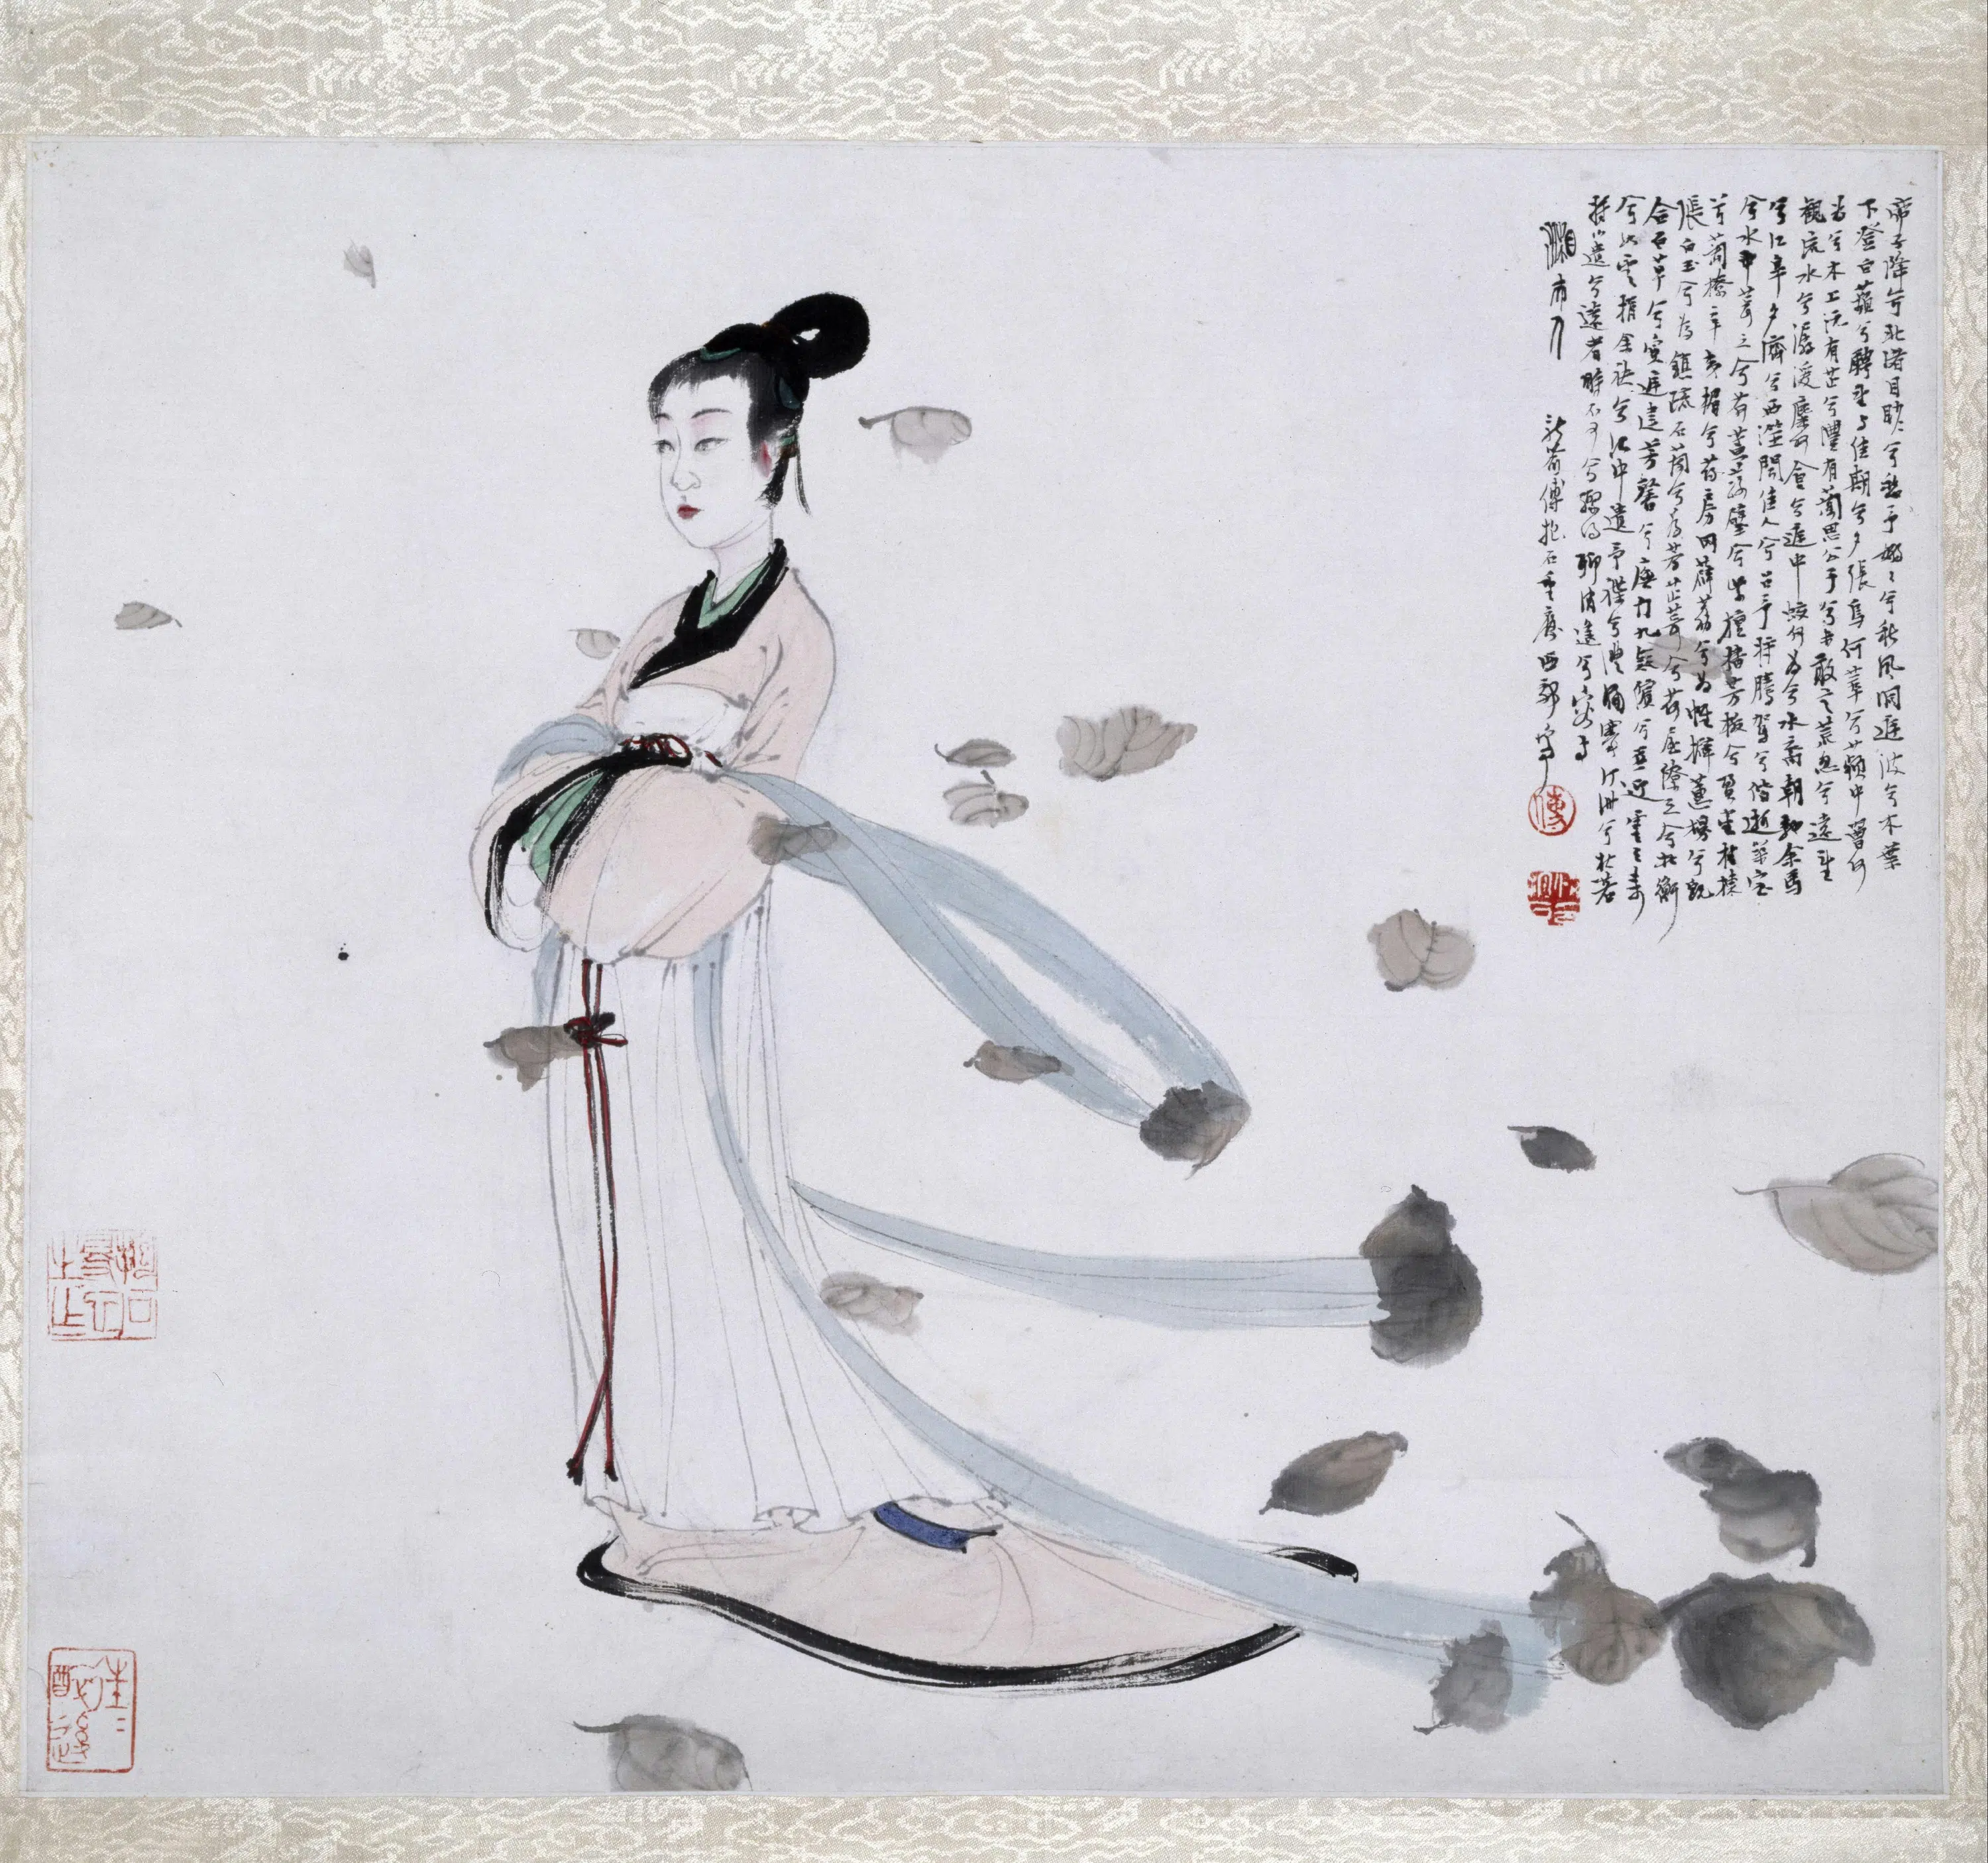 帝子降兮北渚目眇〻兮愁予嫋〻兮秋風洞庭波兮木葉
下登白薠兮騁望與佳期兮夕張鳥何萃兮蘋中罾何
為兮木上沅有芷兮澧有蘭思公子兮未敢言荒忽兮遠望
觀流水兮潺湲麋何食兮庭中蛟何為兮水裔朝馳余馬
兮江皋夕濟兮西澨聞佳人兮召予將騰駕兮偕逝築室
兮水中葺之兮荷蓋蓀壁兮紫壇播芳椒兮盈堂桂棟
兮蘭橑辛夷楣兮葯房罔薜荔兮為帷擗蕙櫋兮既
張白玉兮為鎮疏石蘭兮為芳芷葺兮荷屋繚之兮杜衡
合百草兮實庭建芳馨兮廡門九嶷繽兮並迎靈之來
兮如雲捐余袂兮江中遺予褋兮澧浦搴汀洲兮杜若
將以遺兮遠者時不可兮驟得聊逍遙兮容與
湘夫人 新喻傅抱石重慶西郊寫
傅
往往醉後